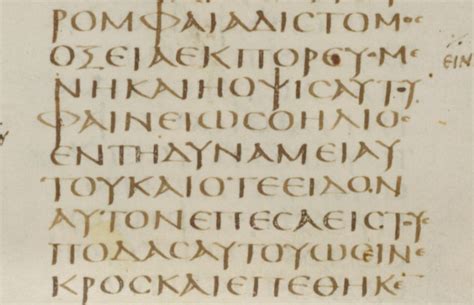 ΡΟΜΦΑΙΑΔΙϹΤΟΜ
ΟϹΕΙΑΕΚΠΟΡΕΥΟΜΕ
ΕΙΝ
ΝΗΚΑΙΗΟΨΙϹΑΥΤΟΥ
ΦΑΙΝΕΙΩϹΟΗΛΙΟϹ
ΕΝΤΗΔΥΝΑΜΕΙΑΥ
ΤΟΥΚΑΙΟΤΕΕΙΔΟΝ
ΑΥΤΟΝΕΠΕϹΑΕΙϹΤΟΥϹ
ΠΟΔΑϹΑΥΤΟΥΩϹΕΙΝΕ
ΚΡΟϹΚΑΙΕΠΕΘΗΚΕ